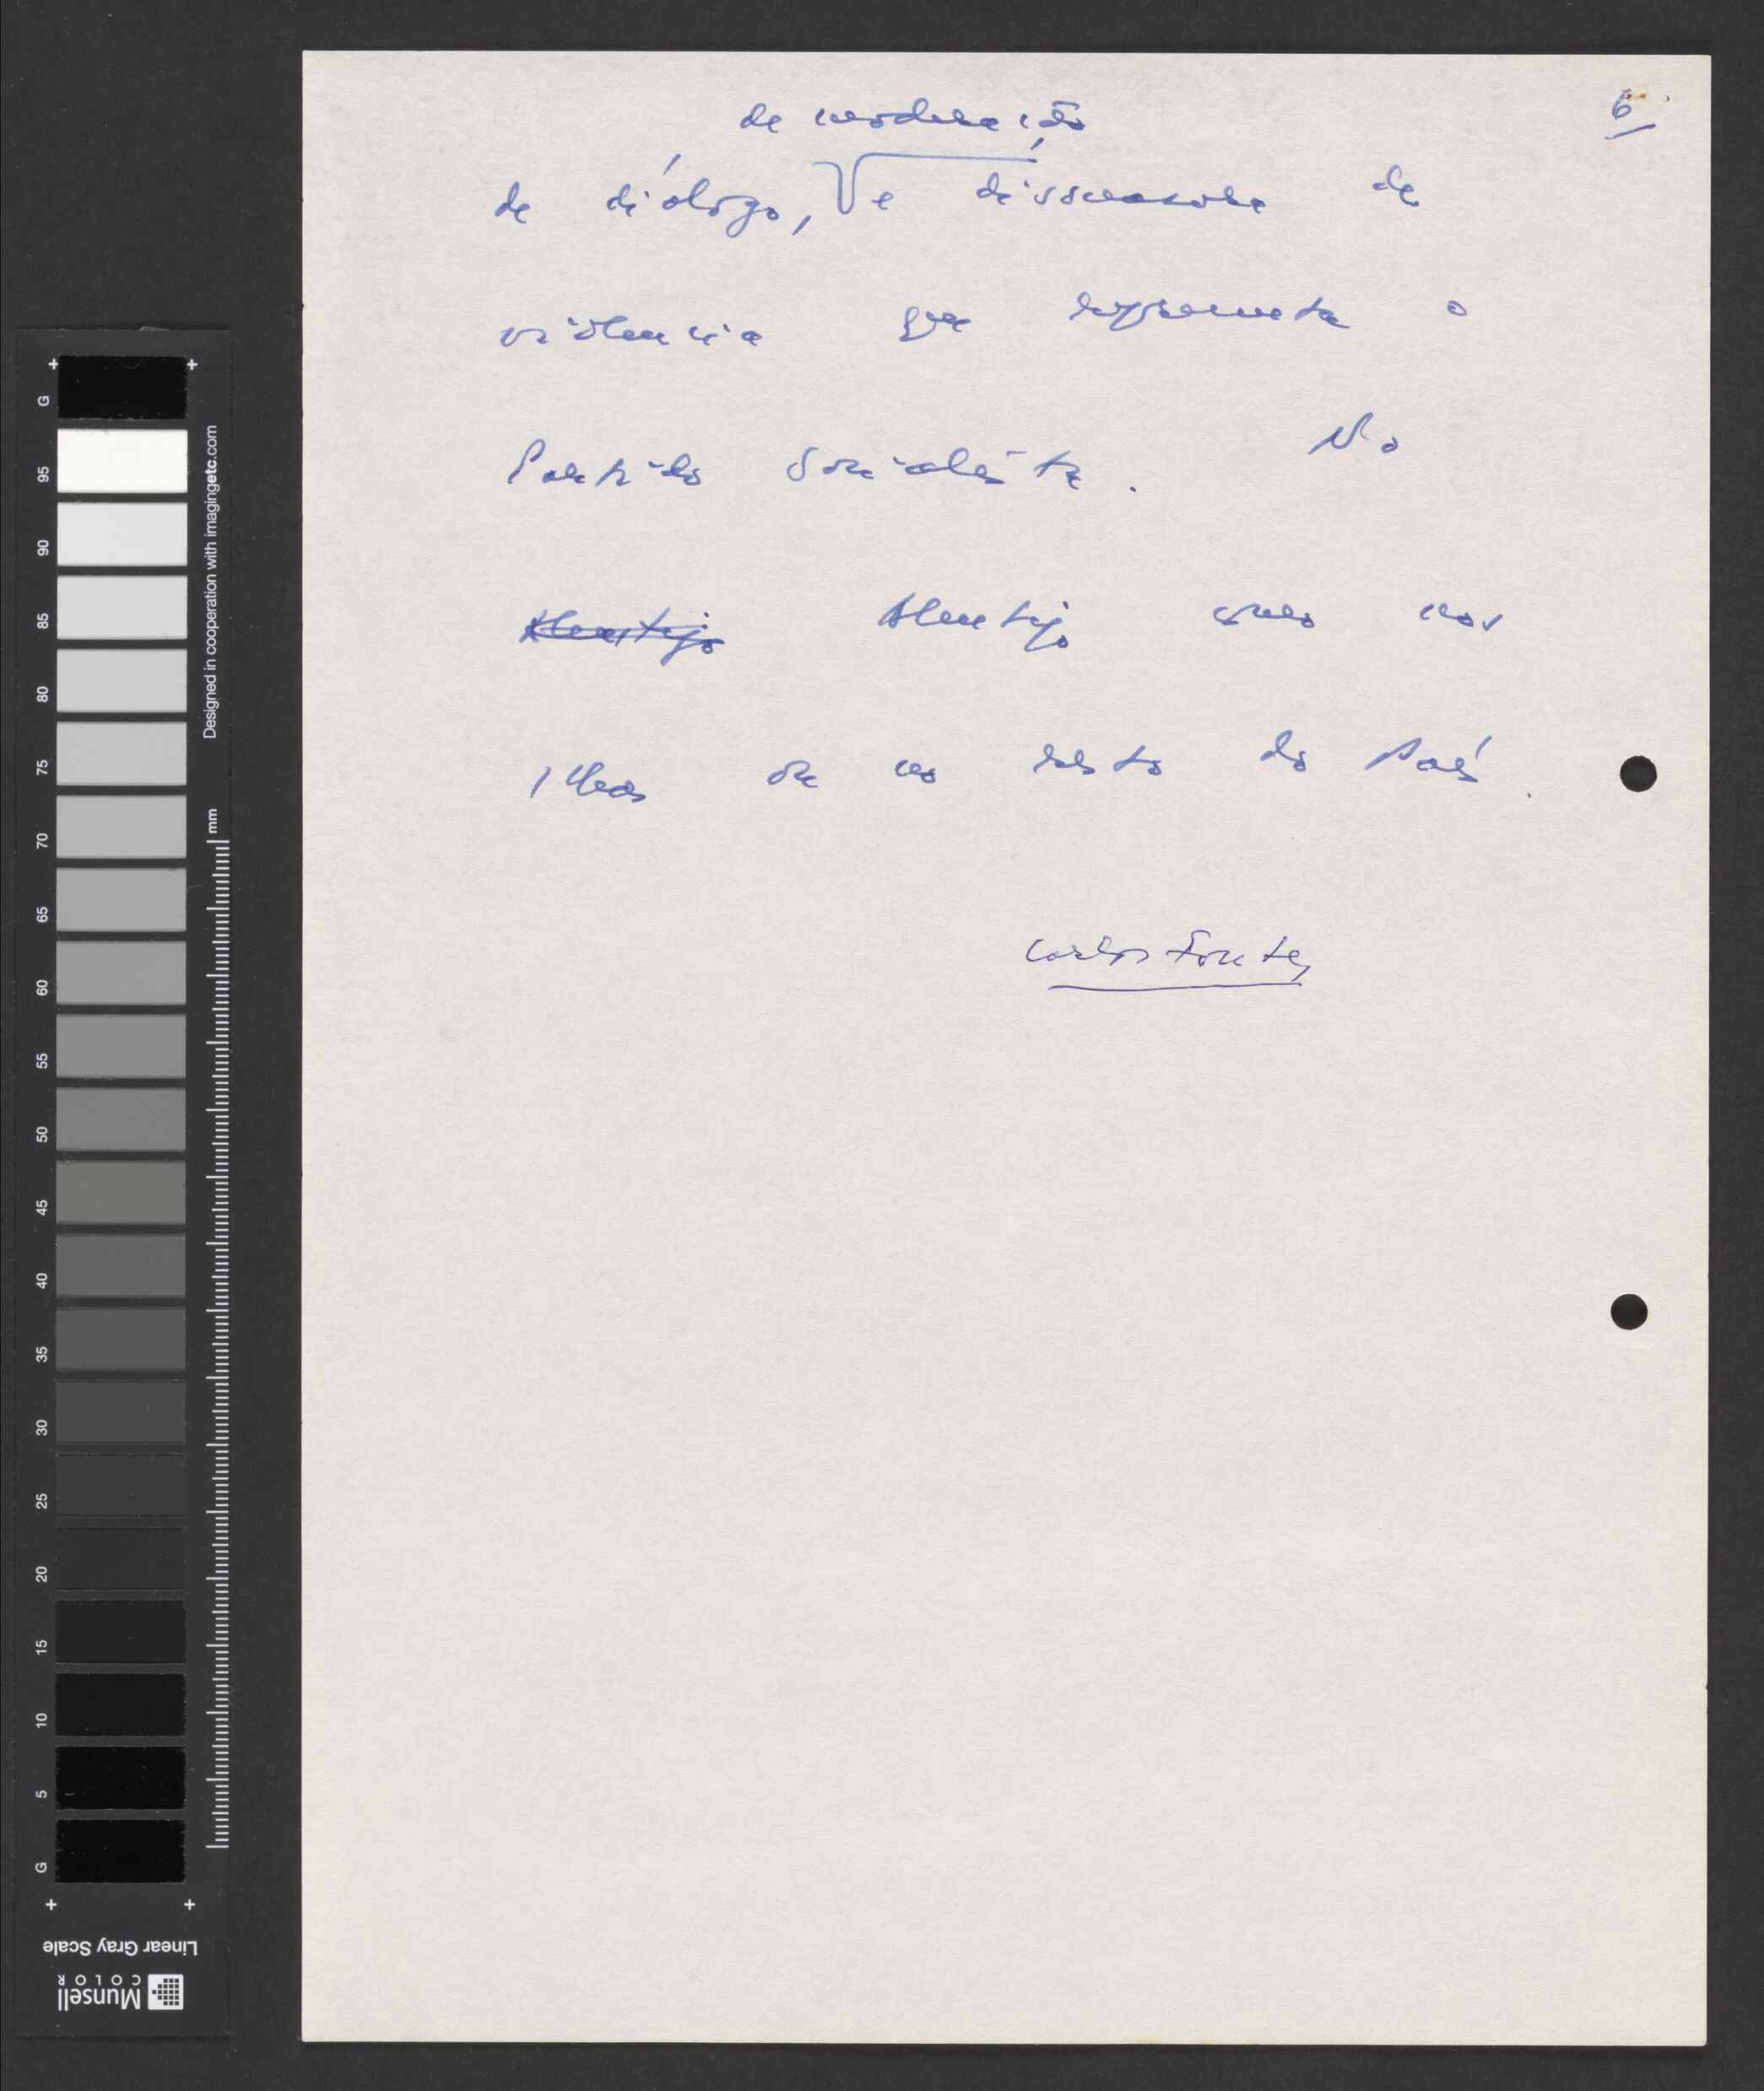 6
de moderação
de diálogo, e dissuasora de
violencia que representa o
Partido Socialista. No
Alentejo Alentejo como nas
Ilhas ou no resto do País.
Carlos Fontes
G
95
90
85
80
75
70
65
60
55
50
45
40
35
30
25
20
15
10
5
G
Designed in cooperation with imagingetc.com
mm
Linear Gray Scale
Munsell
COLOR